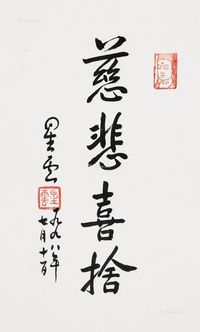 慈悲喜捨
星雲
一九九八年
七月十日